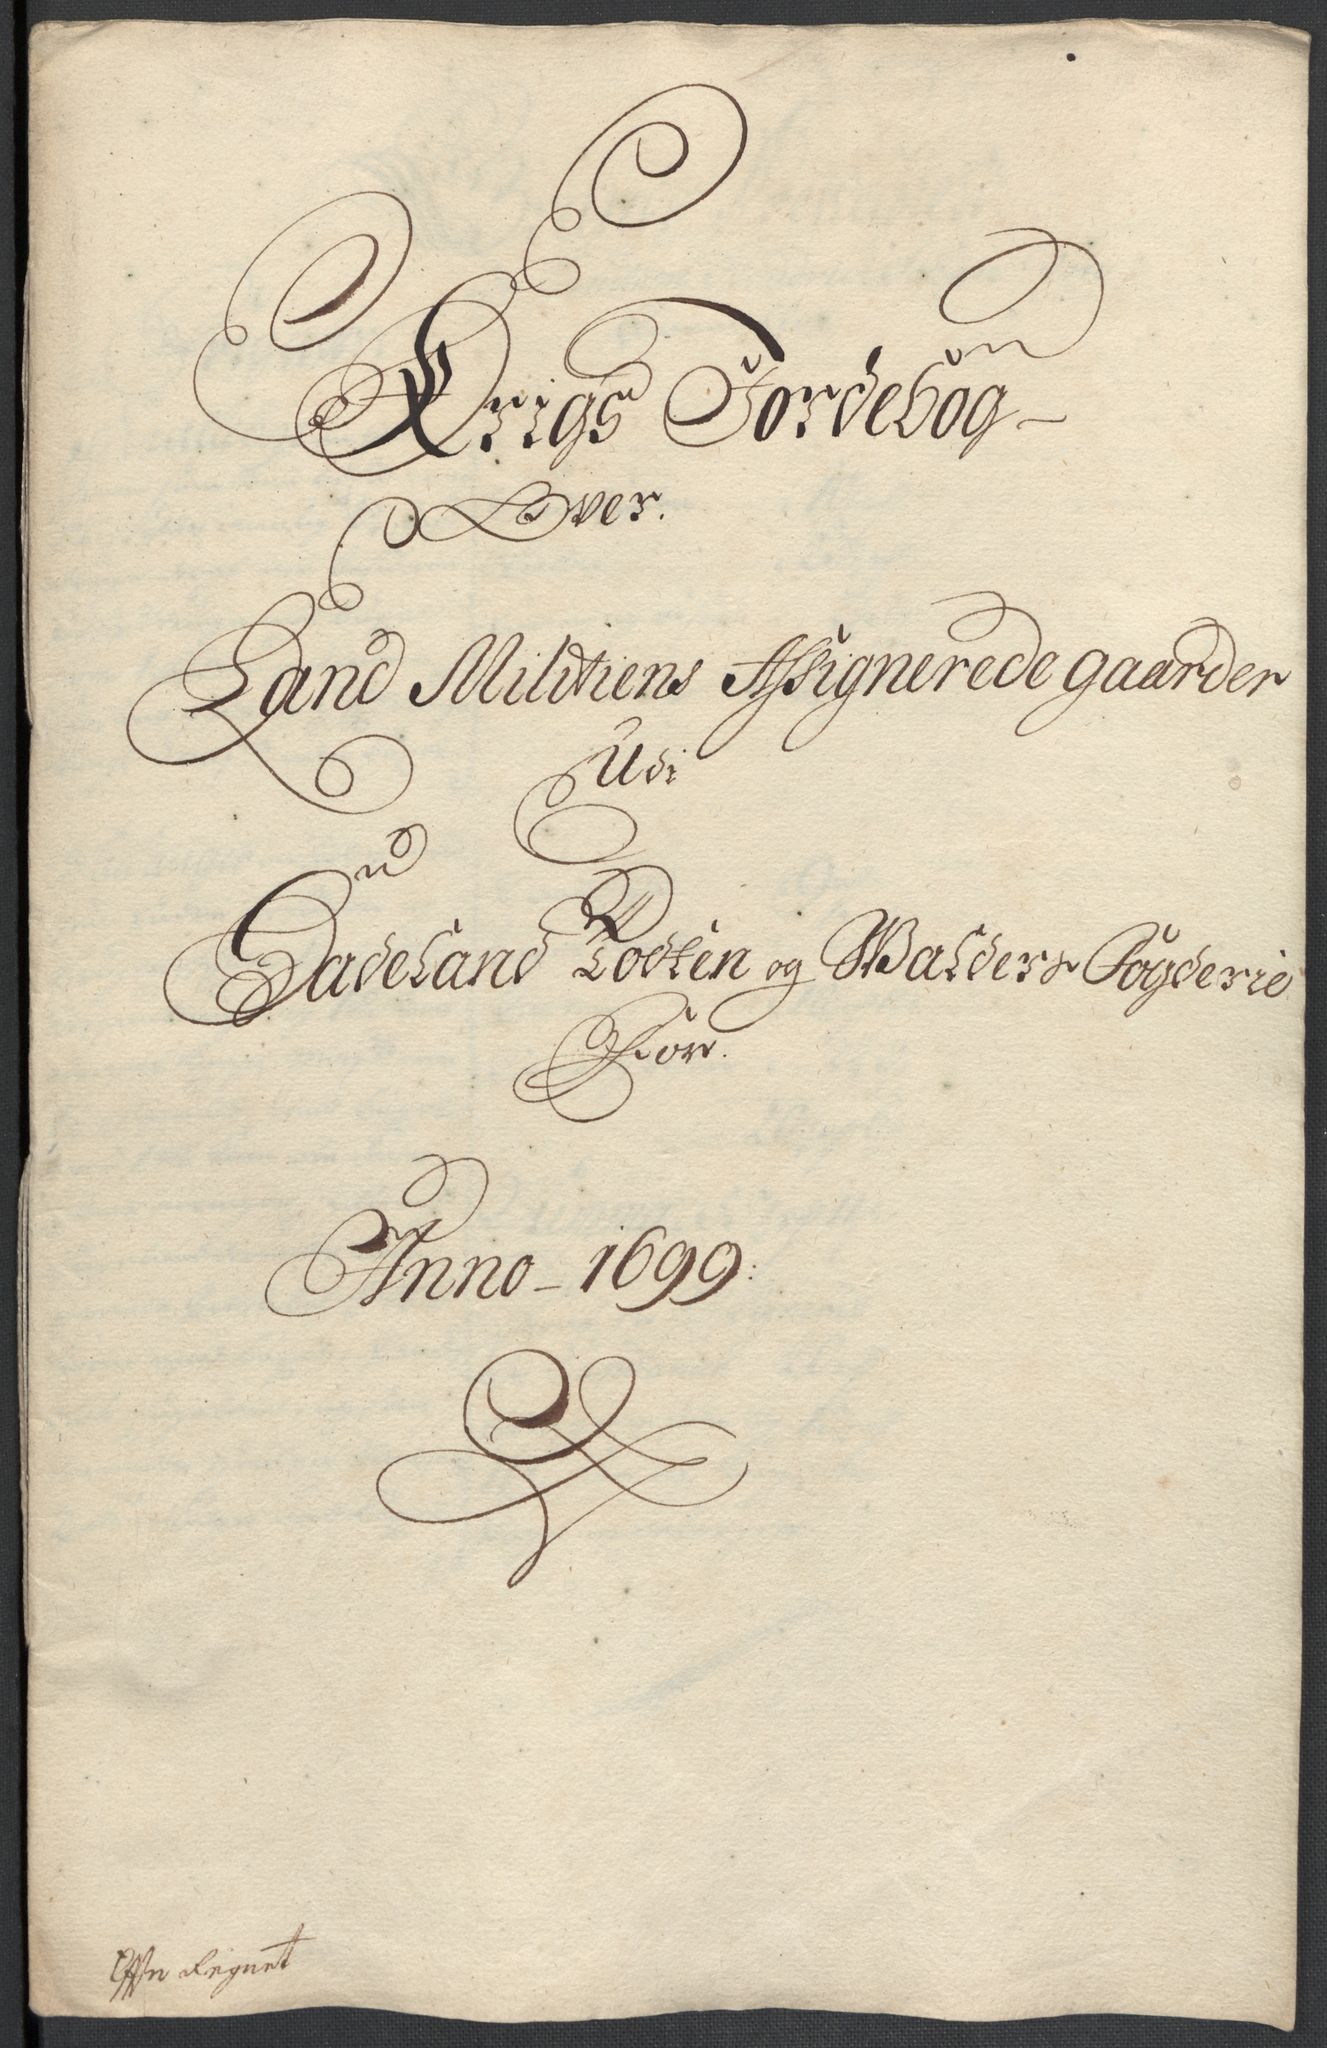 Krigs Jordebog
Over.
Land Militiens Assignerede gaarder
Udi
Hadeland Todten og Walders Fogderie
For.
Anno 1699:
Regnet